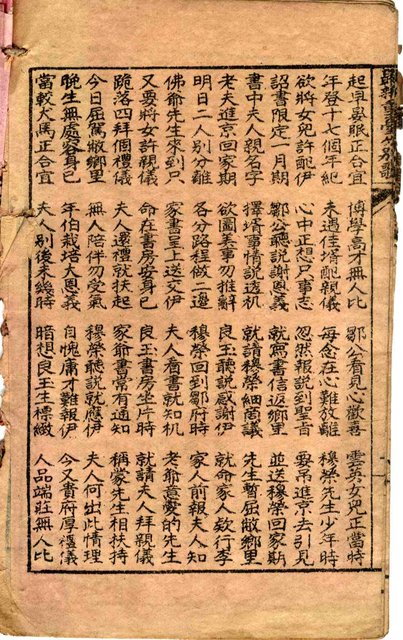 起早晏眠正合宜　博學高才無人比　鄒公看見心歡喜　雲英女兒正當時
年登十七個年紀　未過佳壻配親儀　每念在心難放離　穆榮先生少年時
欲將女兒許配伊　心中正想只事志　忽然報說到聖旨　要帶進京去引見
詔書限定一月期　鄒公聽說謝恩義　就寫書信返鄉里　並送穆榮回家期
書中夫人親名字　擇壻事情說透机　就請穆榮細商議　先生暫屈敝鄉里
老夫進京回家期　欲圖美事勿推辭　良玉聽說感謝伊　就命家人欵行李
明日二人別分離　各分路程做二邊　穆榮回到鄒府時　家人前報夫人知
佛爺先生來到只　家書呈上送交伊　夫人看書就知机　老爺意愛的先生
又要將女許親儀　命在書房安身已　良玉書房坐片時　就請夫人拜親儀
跪落四拜個禮儀　夫人還禮就扶起　家爺書常有通知　稱蒙先生相扶持
今日屈駕敝鄉里　無人陪伴勿受氣　穆榮聽說就應伊　夫人何出此情理
晚生無處容身已　年伯栽培大恩義　自愧庸才難報伊　今又貴府厚禮儀
當較犬馬正合宜　夫人別後未幾時　暗想良玉生標緻　人品端莊無人比